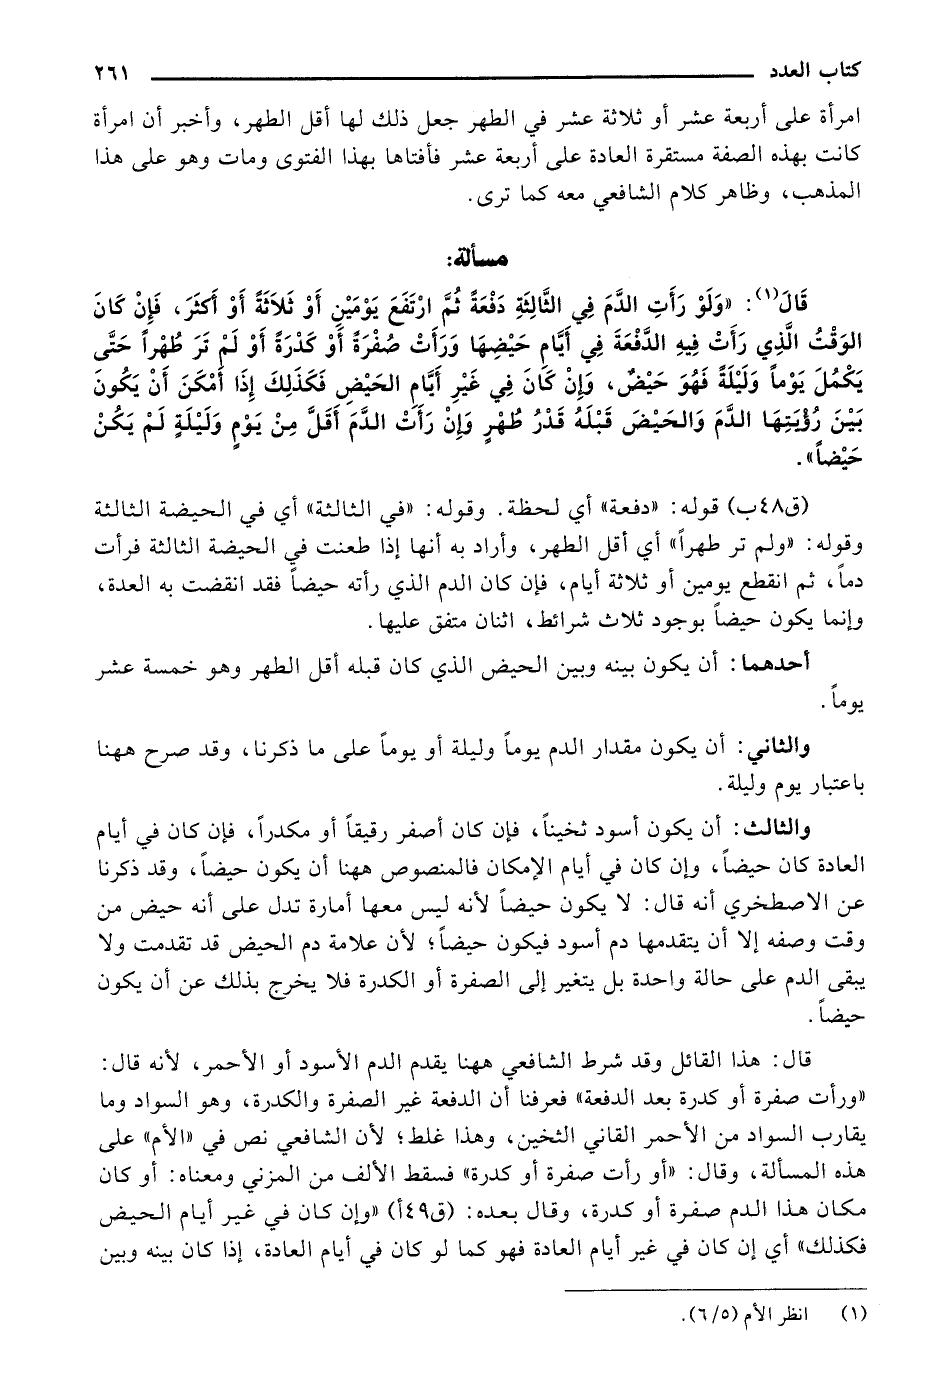 كتاب العدد ٢٦١
امرأة على أربعة عشر أو ثلاثة عشر في الطهر جعل ذلك لها أقل الطهر، وأخبر أن امرأة
كانت بهذه الصفة مستقرة العادة على أربعة عشر فأفتاها بهذا الفتوى ومات وهو على هذا
المذهب، وظاهر كلام الشافعي معه كما ترى.
مسألة:
قَالَ(١): «وَلَوْ رَأَتِ الدَّمَ فِي الثَّالِثَةِ دَفْعَةً ثُمَّ ارْتَفَعَ يَوْمَيْنِ أَوْ ثَلاَثَةً أَوْ أَكثَرَ، فَإِنْ كَانَ
الوَقْتُ الَّذِي رَأَتْ فِيهِ الدَّفْعَةَ فِي أَيَّامِ حَيْضِهَا وَرَأَتْ صُفْرَةً أَوْ كَدْرَةً أَوْ لَمْ تَرَ طُهْراً حَتَّى
يَكْمُلَ يَوْماً وَلَيْلَةً فَهُوَ حَيْضٌ، وَإِنْ كَانَ فِي غَيْرِ أَيَّامِ الحَيْضِ فَكَذَلِكَ إِذَا أَمْكَنَ أَنْ يَكُونَ
بَيْنَ رُؤْيَتِهَا الدَّمَ وَالحَيْضَ قَبْلَهُ قَدْرُ طُهْرٍ وَإِنْ رَأَتْ الدَّمَ أَقَلَّ مِنْ يَوْمٍ وَلَيْلَةٍ لَمْ يَكُنْ
حَيْضاً».
(ق٤٨ب) قوله: «دفعة» أي لحظة. وقوله: «في الثالثة» أي في الحيضة الثالثة
وقوله: «ولم تر طهراً» أي أقل الطهر، وأراد به أنها إذا طعنت في الحيضة الثالثة فرأت
دماً، ثم انقطع يومين أو ثلاثة أيام، فإن كان الدم الذي رأته حيضاً فقد انقضت به العدة،
وإنما يكون حيضاً بوجود ثلاث شرائط، اثنان متفق عليها.
أحدهما: أن يكون بينه وبين الحيض الذي كان قبله أقل الطهر وهو خمسة عشر
يوماً.
والثاني: أن يكون مقدار الدم يوماً وليلة أو يوماً على ما ذكرنا، وقد صرح ههنا
باعتبار يوم وليلة.
والثالث: أن يكون أسود ثخيناً، فإن كان أصفر رقيقاً أو مكدراً، فإن كان في أيام
العادة كان حيضاً، وإن كان في أيام الإمكان فالمنصوص ههنا أن يكون حيضاً، وقد ذكرنا
عن الاصطخري أنه قال: لا يكون حيضاً لأنه ليس معها أمارة تدل على أنه حيض من
وقت وصفه إلا أن يتقدمها دم أسود فيكون حيضاً؛ لأن علامة دم الحيض قد تقدمت ولا
يبقى الدم على حالة واحدة بل يتغير إلى الصفرة أو الكدرة فلا يخرج بذلك عن أن يكون
حيضاً.
قال: هذا القائل وقد شرط الشافعي ههنا يقدم الدم الأسود أو الأحمر، لأنه قال:
«ورأت صفرة أو كدرة بعد الدفعة» فعرفنا أن الدفعة غير الصفرة والكدرة، وهو السواد وما
يقارب السواد من الأحمر القاني الثخين، وهذا غلط؛ لأن الشافعي نص في «الأم» على
هذه المسألة، وقال: «أو رأت صفرة أو كدرة» فسقط الألف من المزني ومعناه: أو كان
مكان هذا الدم صفرة أو كدرة، وقال بعده: (ق٤٩أ) «وإن كان في غير أيام الحيض
فكذلك» أي إن كان في غير أيام العادة فهو كما لو كان في أيام العادة، إذا كان بينه وبين
(١) انظر الأم (٥/ ٦).